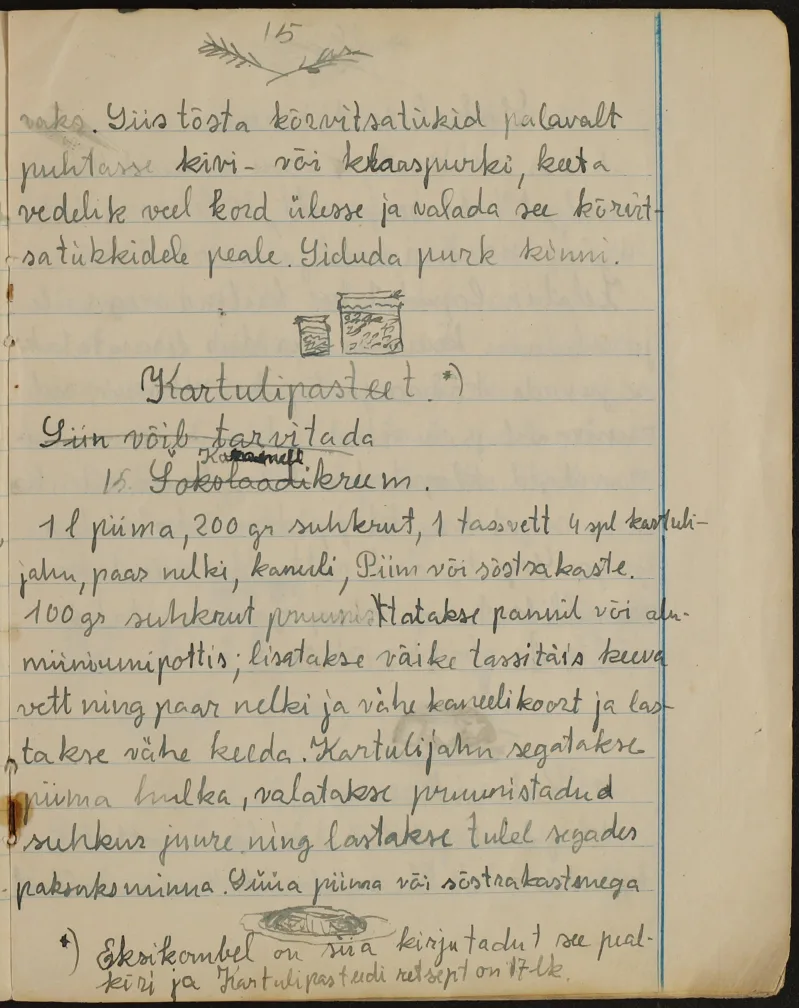 15
vaks. Siis tõsta kõrvitsatükid palavalt
puhtasse kivi- või klaaspurki, keeta
vedelik veel kord ülesse ja valada see kõrvit-
satükkidele peale. Siduda purk kinni.
Kartulipasteet. *)
Siin võib tarvitada
Karamell
15. Šokolaadikreem.
1 l piima, 200 gr suhkrut, 1 tass vett 4 spl kartuli-
jahu, paar nelki, kaneeli, Piim või sõstrakaste.
100 gr suhkrut pruunistatakse pannil või alu-
miiniumipottis; lisatakse väike tassitäis keeva
vett ning paar nelki ja vähe kaneelikoort ja las-
takse vähe keeda. Kartulijahu segatakse
piima hulka, valatakse pruunistadud
suhkur juure ning lastakse tulel segades
paksuks minna. Süüa piima või sõstrakastmega
*) Eksikombel on siia kirjutadut see peal-
kiri ja Kartulipasteedi retsept on 17 lk.